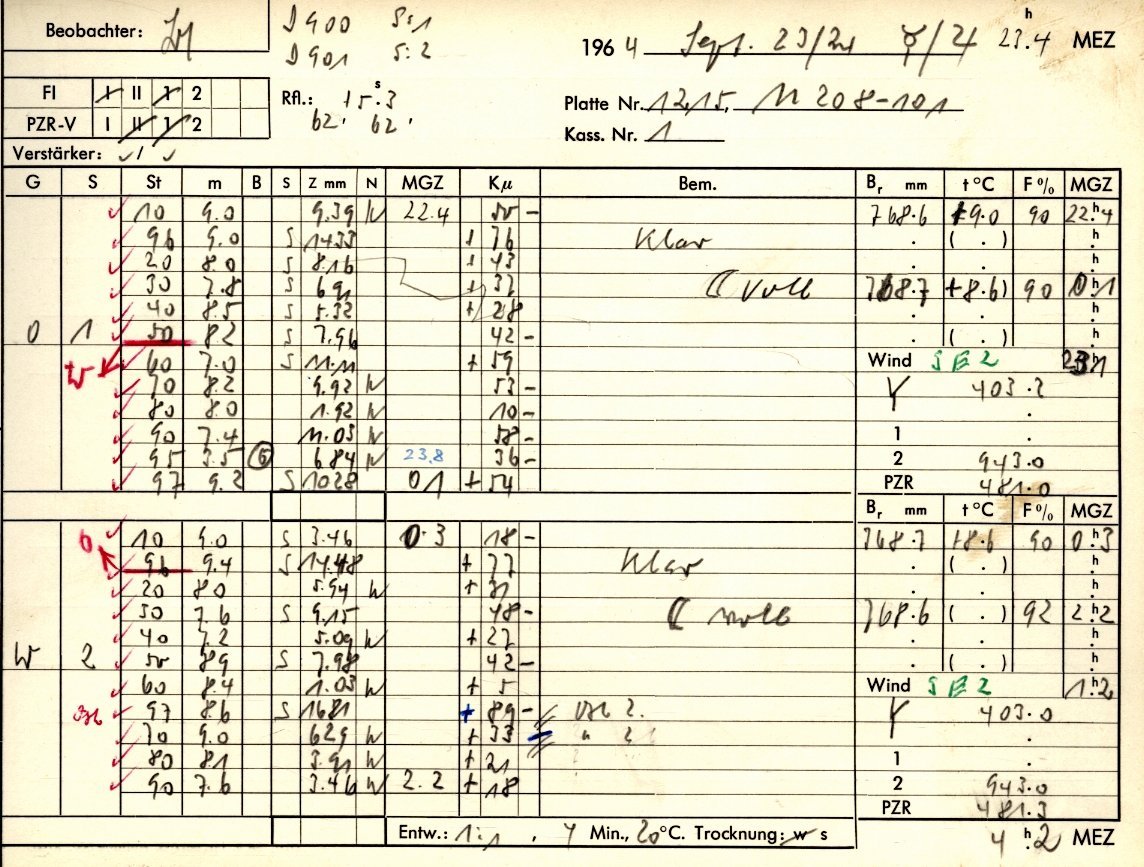 Beobachter:
D 900 S:1
D 901 S:2
1964 Sept. 23/24 23.4 h MEZ
FI I II 1 2
PZR-V I II 1 2
Verstärker: ✓/ ✓
Rfl.: +5.3 s
62' 62'
Platte Nr. 1215, N 208-101
Kass. Nr. 1
G S St m B S Z mm N MGZ Kμ Bem. Br mm t °C F % MGZ
10 9.0 9.39 N 22.4 50 - 768.6 +9.0 90 22.h4
96 9.0 S 14.33 + 76 Klar . ( . ) h
20 8.0 S 8.16 + 43 . . h
30 7.8 S 6.91 + 37 ☾ voll 768.7 +8.6) 90 0.h1
40 8.5 S 5.32 + 28 . . h
0 1 50 8.2 S 7.96 42 - . ( . ) h
W 60 7.0 S 11.11 + 59 Wind SE 2 23.1
70 8.2 9.92 N 53 - Y 403.2
80 8.0 1.92 N 10 - .
90 7.4 11.03 N 58 - 1 .
95 3.5 6 6.84 N 23.8 36 - 2 943.0
97 9.2 S 10.28 0.1 + 54 PZR 481.0
Br mm t °C F % MGZ
0 10 9.0 S 3.46 0.3 18 - 768.7 +8.6 90 0.h3
96 9.4 S 14.48 + 77 Klar . ( . ) h
20 8.0 5.94 N + 31 . . h
30 7.6 S 9.15 48 - ☾ voll 768.6 ( . ) 92 2.h2
40 7.2 5.09 N + 27 . . h
W 2 50 8.9 S 7.98 42 - . ( . ) h
60 8.4 1.03 N + 5 Wind SE 2 1.h2
97 8.6 S 16.81 + 89 - 2. Y 403.0
70 9.0 6.29 N + 33 " 2 .
80 8.1 3.91 N + 21 1 .
90 7.6 3.46 N 2.2 + 18 2 943.0
PZR 481.3
Entw.: 1:1, 7 Min., 20 °C. Trocknung: w s 4 h.2 MEZ